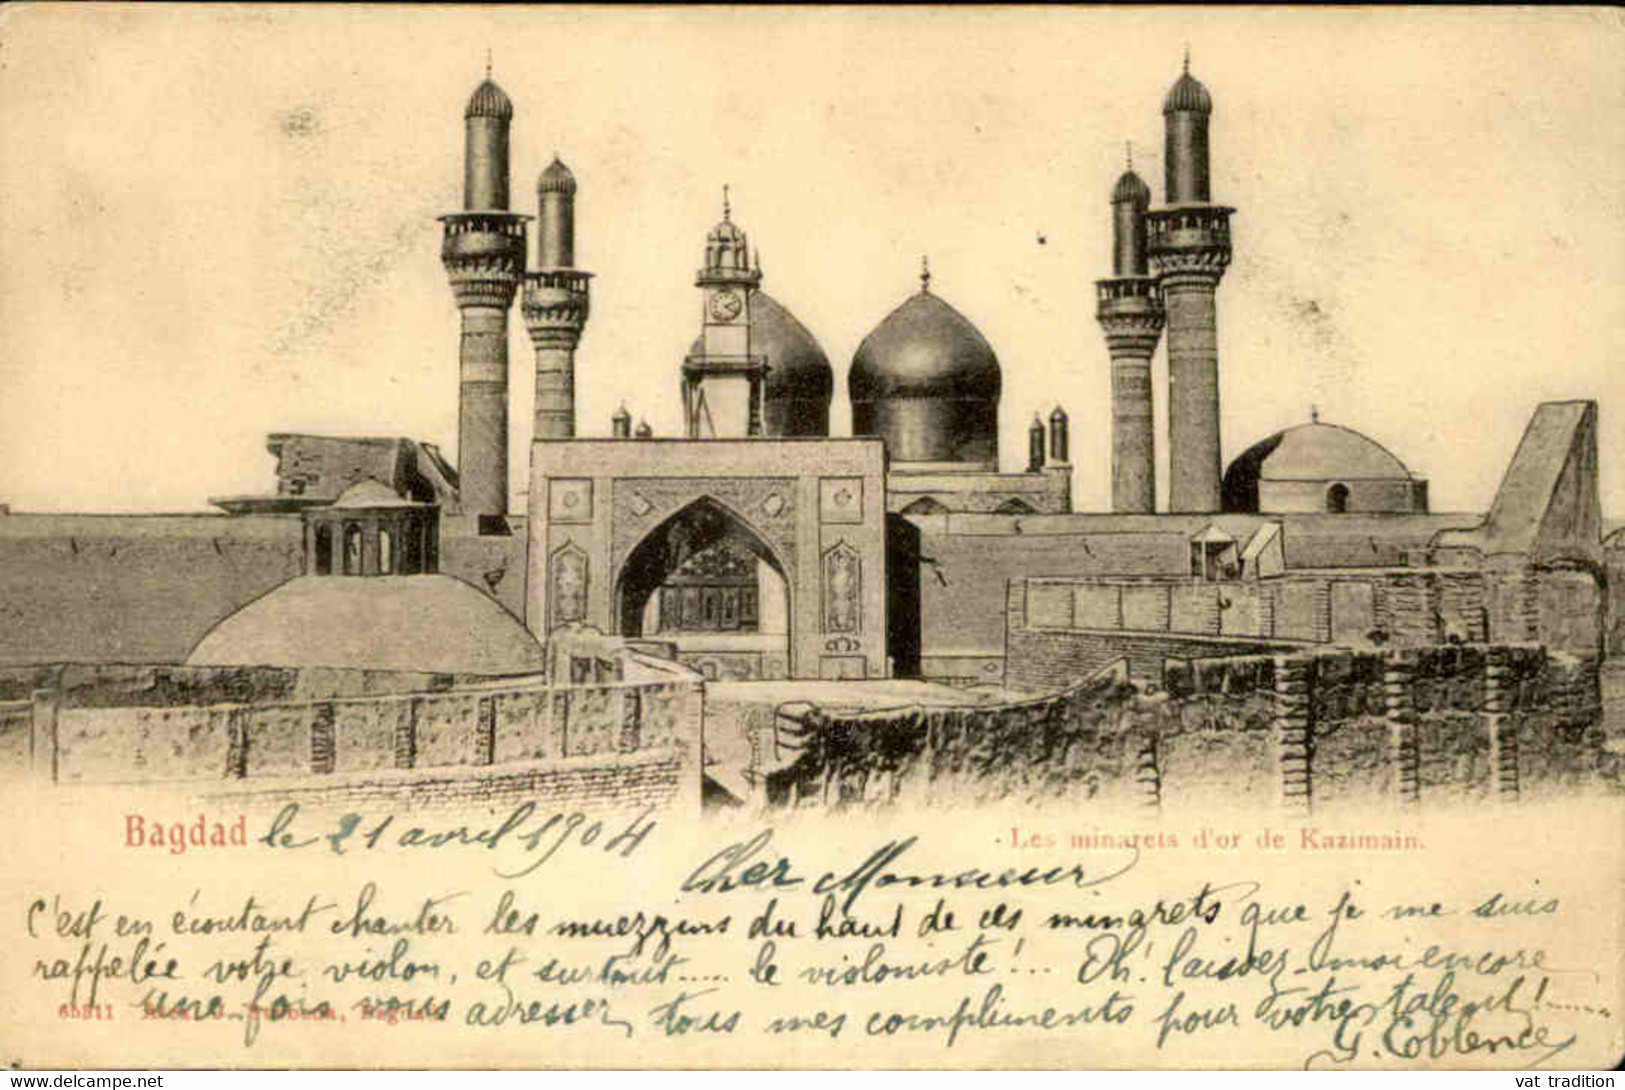 Bagdad le 21 avril 1904
Les minarets d'or de Kazimain.
Cher Monsieur
C'est en écoutant chanter les muezzins du haut de ces minarets que je me suis
rappelée votre violon, et surtout..... le violoniste!... Oh! laissez-moi encore
une fois vous adresser tous mes compliments pour votre talent!......
65811
G. Coblence
vat tradition